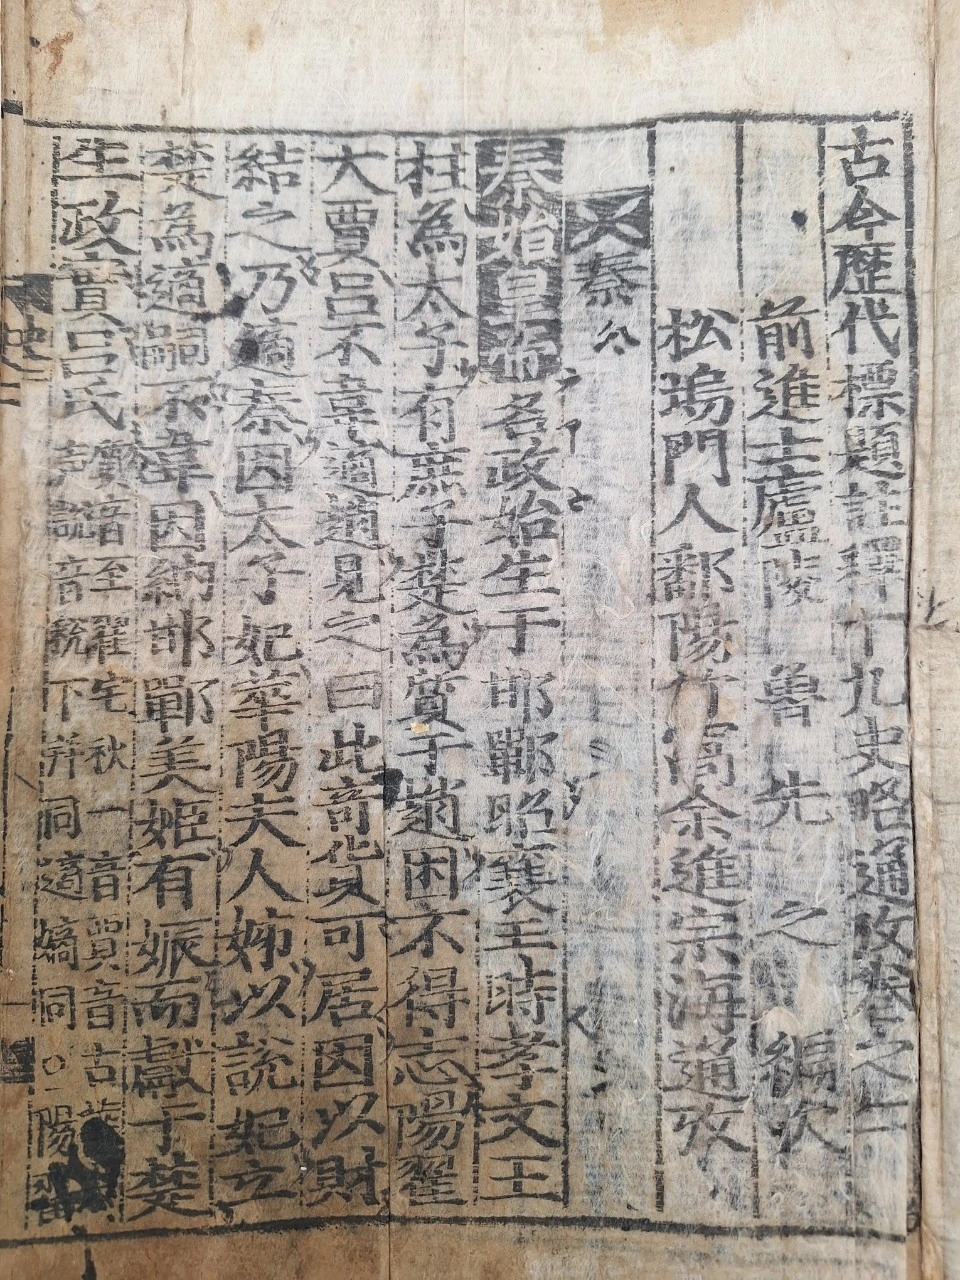 古今歷代標題註釋十九史略通攷卷之二
前進士廬陵 魯 先 之 編次
松塢門人鄱陽竹窩余進宗海通攷
秦
秦始皇帝名政始生于邯鄲昭襄王時孝文王
柱為太子有庶子楚為質于趙困不得志陽翟
大賈呂不韋適趙見之曰此奇貨可居因以財
結之乃適秦因太子妃華陽夫人姊以說妃立
楚為適嗣不韋因納邯鄲美姬有娠而獻于楚
生政實呂氏
質音至翟宅秋一音賈音古
說音稅下并同適嫡同○陽翟